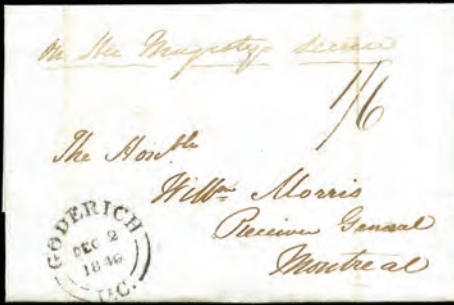 On Her Majestys Service
1/6
The Honble
Willm Morris
Receiver General
Montreal
GODERICH
DEC 2
1846
U.C.